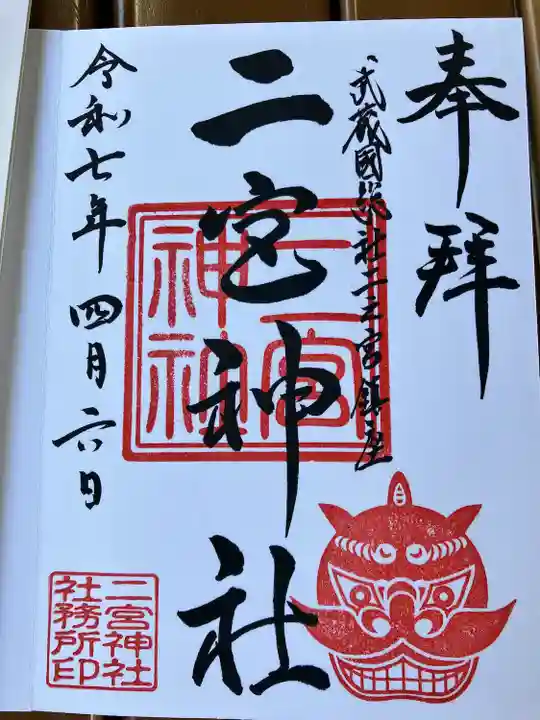 奉拝
武蔵國総社二之宮鎮座
二宮神社
令和七年四月六日
二宮
神社
二宮神社
社務所印